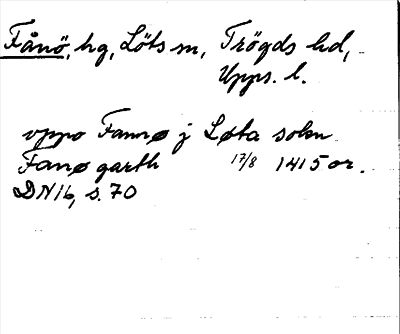 Fånö, hg, Löts sn, Trögds hd,
Upps. l.
vppo Fannø j Løta sokn
Fanø garth 17/8 1415 or.
DN 16, s. 70